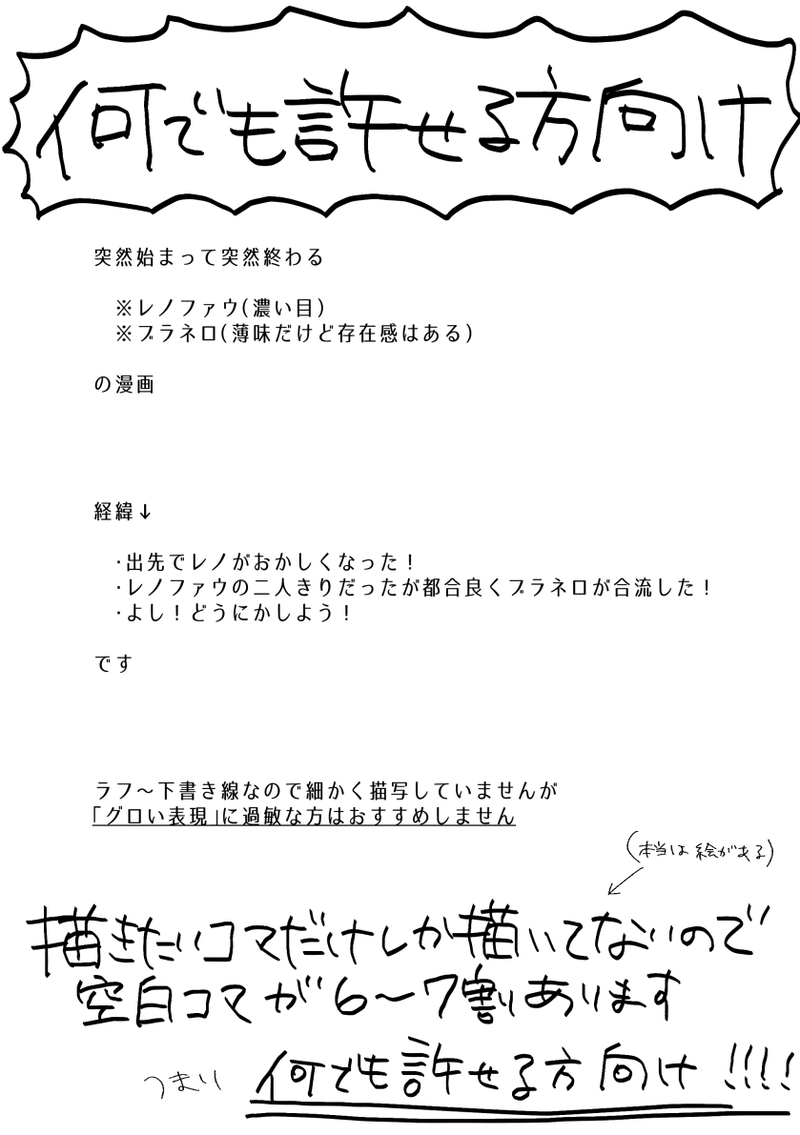 何でも許せる方向け
突然始まって突然終わる
※レノファウ(濃い目)
※ブラネロ(薄味だけど存在感はある)
の漫画
経緯↓
・出先でレノがおかしくなった！
・レノファウの二人きりだったが都合良くブラネロが合流した！
・よし！どうにかしよう！
です
ラフ～下書き線なので細かく描写していませんが
「グロい表現」に過敏な方はおすすめしません
(本当は絵がある)
描きたいコマだけしか描いてないので
空白コマが6～7割あります
つまり 何でも許せる方向け!!!!